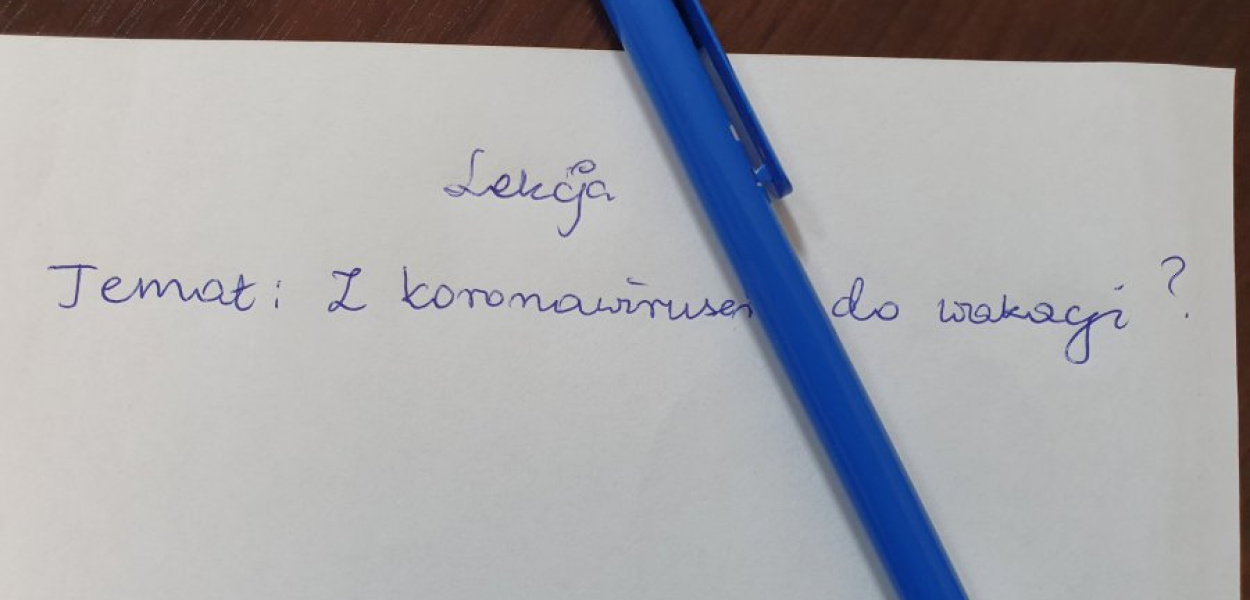 Lekcja
Temat: Z koronawirusem do wakacji?